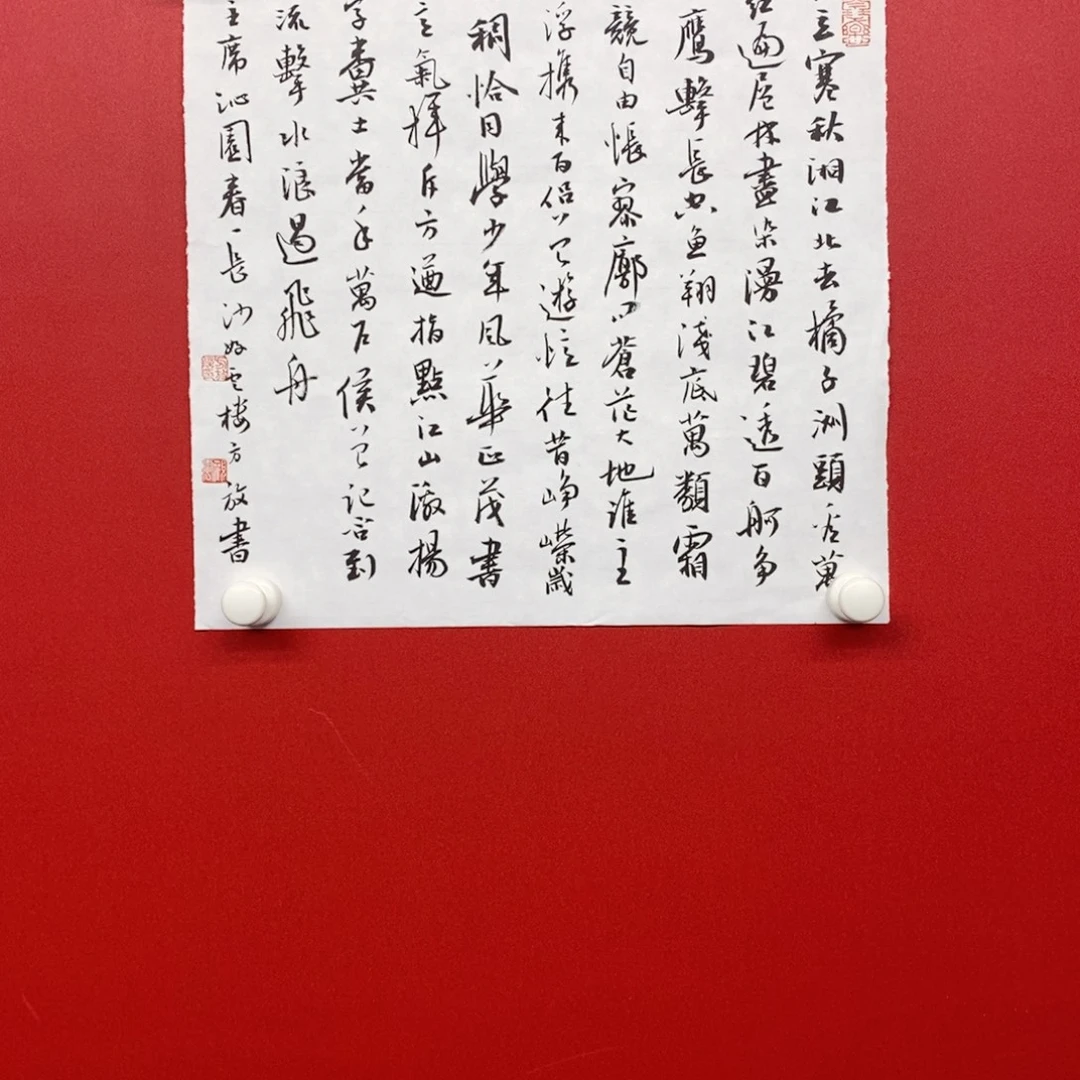 立寒秋湘江北去橘子洲頭看萬
紅遍层林盡染漫江碧透百舸争
鹰擊長空鱼翔淺底萬類霜
競自由悵寥廓问蒼茫大地谁主
浮携来百侣曾遊忆往昔峥嵘歲
稠恰同學少年风華正茂書
意氣揮斥方遒指點江山激揚
字糞土當年萬户侯曾记否到
流擊水浪遏飛舟
主席沁園春一長沙好雲樓方放書